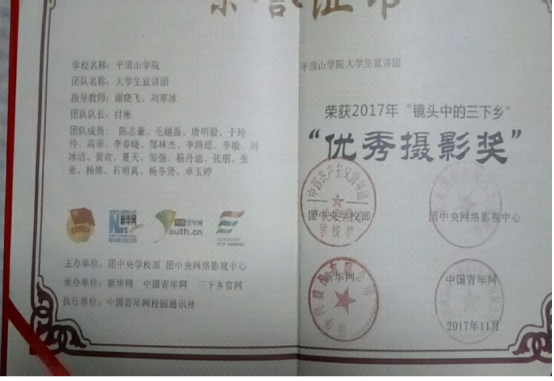 荣誉证书
学校名称：平顶山学院
团队名称：大学生宣讲团
指导教师：谢晓飞、刘寒冰
团队队长：付彬
团队成员：陈志豪、毛越磊、唐明毅、于玲
玲、高章、李春晓、郜林杰、李路瑶、李敏、刘
冰洁、黄欢、夏天、邹强、杨丹迪、张朋、张
蓝、杨帅、石明真、杨冬贤、卓玉婷
新华网
Youth.cn
主办单位：团中央学校部 团中央网络影视中心
承办单位：新华网 中国青年网 三下乡官网
执行单位：中国青年网校园通讯社
平顶山学院大学生宣讲团
荣获2017年“镜头中的三下乡”
“优秀摄影奖”
团中央学校部
团中央网络影视中心
新华网
中国青年网
2017年11月